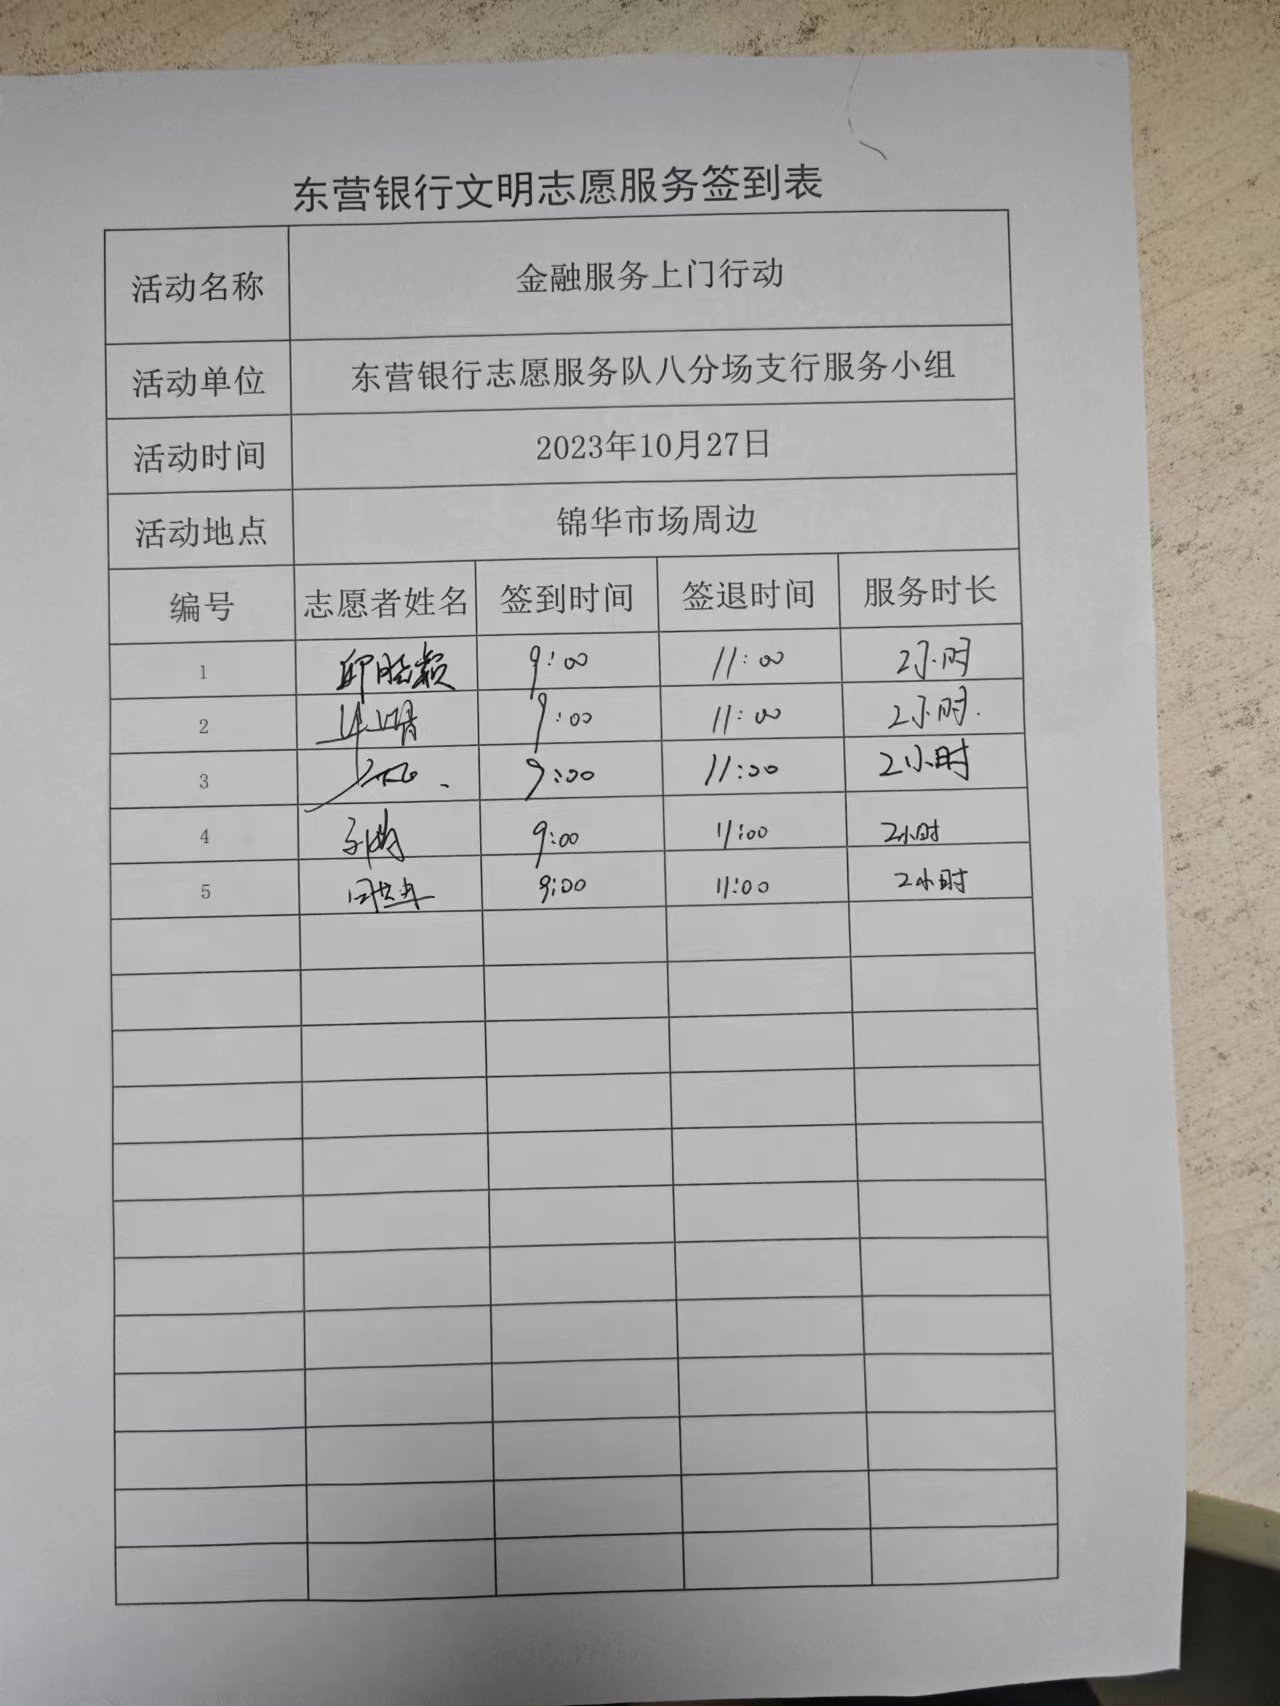 东营银行文明志愿服务签到表
活动名称 金融服务上门行动
活动单位 东营银行志愿服务队八分场支行服务小组
活动时间 2023年10月27日
活动地点 锦华市场周边
编号 志愿者姓名 签到时间 签退时间 服务时长
1 9:00 11:00 2小时
2 9:00 11:00 2小时.
3 9:00 11:00 2小时
4 9:00 11:00 2小时
5 9:00 11:00 2小时